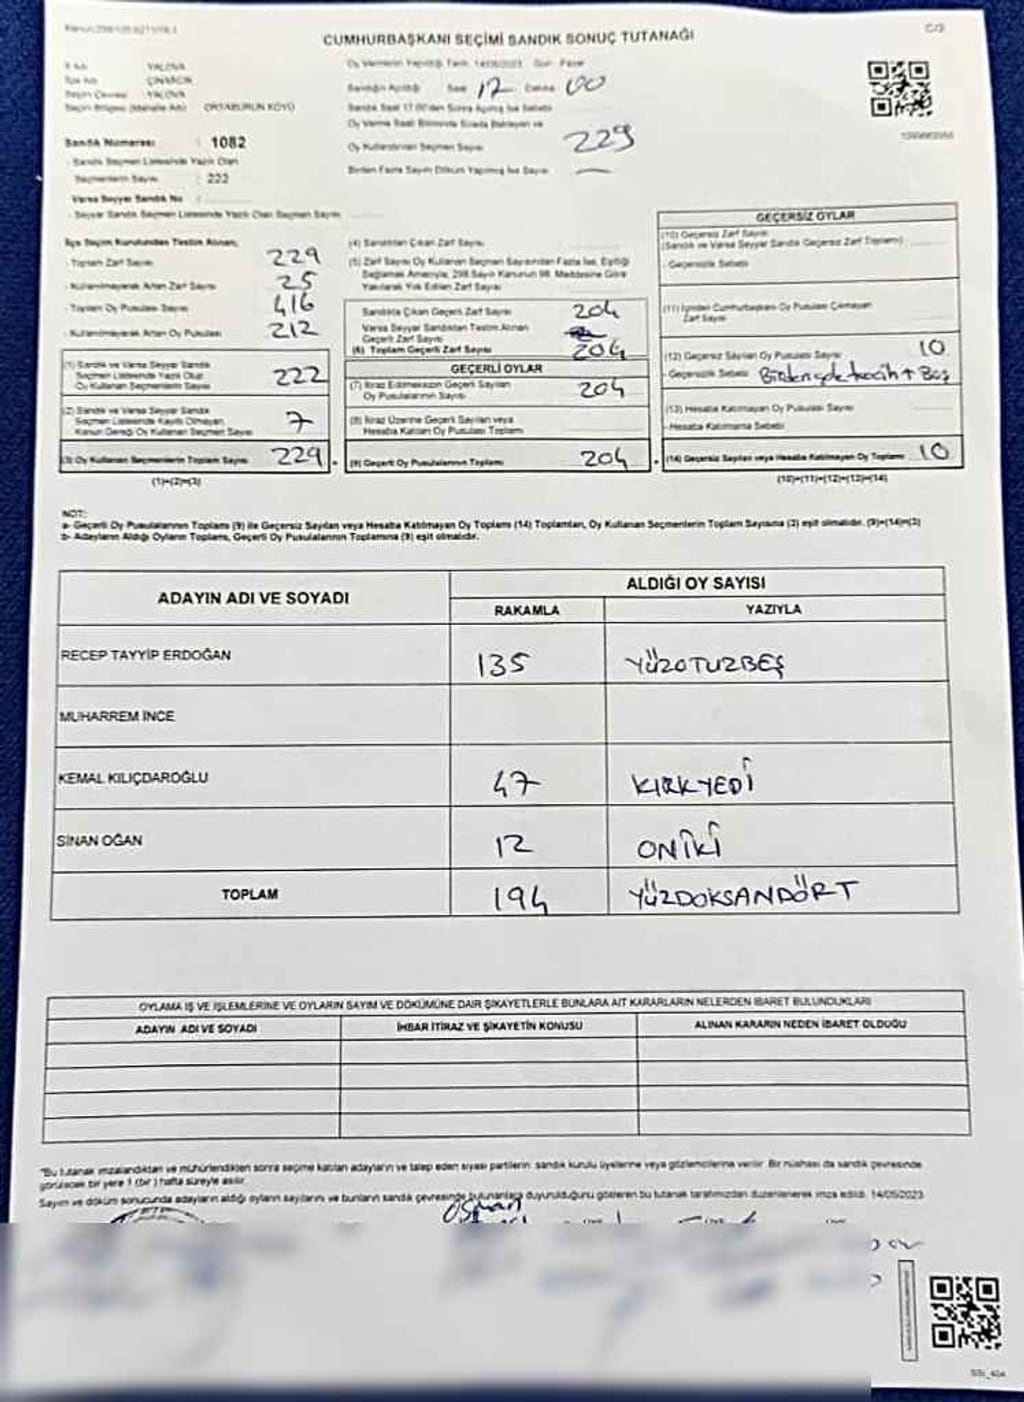 C/2
CUMHURBAŞKANI SEÇİMİ SANDIK SONUÇ TUTANAĞI
İl Adı YALOVA
İlçe Adı ÇINARCIK
Seçim Çevresi YALOVA
Seçim Bölgesi (Mahalle Adı) ORTABURUN KÖYÜ
Oy Vermenin Yapıldığı Tarih 14/05/2023 Gün: Pazar
Sandığın Açıldığı Saat 17 Dakika 00
Sandık Saat 17.00'den Sonra Açılmış İse Sebebi
Oy Verme Saati Bitiminde Sırada Bekleyen ve
Oy Kullandırılan Seçmen Sayısı 229
Birden Fazla Sayım Döküm Yapılmış İse Sayısı —
Sandık Numarası : 1082
- Sandık Seçmen Listesinde Yazılı Olan
Seçmenlerin Sayısı : 222
Varsa Seyyar Sandık No
- Seyyar Sandık Seçmen Listesinde Yazılı Olan Seçmen Sayısı
İlçe Seçim Kurulundan Teslim Alınan;
- Toplam Zarf Sayısı 229
- Kullanılmayarak Artan Zarf Sayısı 25
- Toplam Oy Pusulası Sayısı 416
- Kullanılmayarak Artan Oy Pusulası 212
(1) Sandık ve Varsa Seyyar Sandık
Seçmen Listesinde Yazılı Olup
Oy Kullanan Seçmenlerin Sayısı 222
(2) Sandık ve Varsa Seyyar Sandık
Seçmen Listesinde Kayıtlı Olmayan,
Kanun Gereği Oy Kullanan Seçmen Sayısı 7
(3) Oy Kullanan Seçmenlerin Toplam Sayısı 229
(1)+(2)=(3)
(4) Sandıktan Çıkan Zarf Sayısı
(5) Zarf Sayısı Oy Kullanan Seçmen Sayısından Fazla İse, Eşitliği
Sağlamak Amacıyla, 298 Sayılı Kanunun 98. Maddesine Göre
Yakılarak Yok Edilen Zarf Sayısı
Sandıkta Çıkan Geçerli Zarf Sayısı 204
Varsa Seyyar Sandıktan Teslim Alınan
Geçerli Zarf Sayısı
(6) Toplam Geçerli Zarf Sayısı 204
GEÇERLİ OYLAR
(7) İtiraz Edilmeksizin Geçerli Sayılan
Oy Pusulalarının Sayısı 204
(8) İtiraz Üzerine Geçerli Sayılan veya
Hesaba Katılan Oy Pusulası Toplamı
(9) Geçerli Oy Pusulalarının Toplamı 204
GEÇERSİZ OYLAR
(10) Geçersiz Zarf Sayısı
(Sandık ve Varsa Seyyar Sandık Geçersiz Zarf Toplamı)
- Geçersizlik Sebebi
(11) İçinden Cumhurbaşkanı Oy Pusulası Çıkmayan
Zarf Sayısı
(12) Geçersiz Sayılan Oy Pusulası Sayısı 10
- Geçersizlik Sebebi Birden çok tercih + Boş
(13) Hesaba Katılmayan Oy Pusulası Sayısı
- Hesaba Katılmama Sebebi
(14) Geçersiz Sayılan veya Hesaba Katılmayan Oy Toplamı 10
(10)+(11)+(12)+(13)=(14)
NOT:
a- Geçerli Oy Pusulalarının Toplamı (9) ile Geçersiz Sayılan veya Hesaba Katılmayan Oy Toplamı (14) Toplamları, Oy Kullanan Seçmenlerin Toplam Sayısına (3) eşit olmalıdır. (9)+(14)=(3)
b- Adayların Aldığı Oyların Toplamı, Geçerli Oy Pusulalarının Toplamına (9) eşit olmalıdır.
ADAYIN ADI VE SOYADI
ALDIĞI OY SAYISI
RAKAMLA YAZIYLA
RECEP TAYYİP ERDOĞAN 135 YÜZOTUZBEŞ
MUHARREM İNCE
KEMAL KILIÇDAROĞLU 47 KIRKYEDİ
SİNAN OĞAN 12 ONİKİ
TOPLAM 194 YÜZDOKSANDÖRT
OYLAMA İŞ VE İŞLEMLERİNE VE OYLARIN SAYIM VE DÖKÜMÜNE DAİR ŞİKAYETLERLE BUNLARA AİT KARARLARIN NELERDEN İBARET BULUNDUKLARI
ADAYIN ADI VE SOYADI İHBAR İTİRAZ VE ŞİKAYETİN KONUSU ALINAN KARARIN NEDEN İBARET OLDUĞU
*Bu tutanak imzalandıktan ve mühürlendikten sonra seçime katılan adayların ve talep eden siyasi partilerin sandık kurulu üyelerine veya gözlemcilerine verilir. Bir nüshası da sandık çevresinde
görülecek bir yere 1 (bir) hafta süreyle asılır.
Sayım ve döküm sonucunda adayların aldığı oyların sayılarını ve bunların sandık çevresinde bulunanlara duyurulduğunu gösteren bu tutanak tarafımızdan düzenlenerek imza edildi. 14/05/2023
Osman